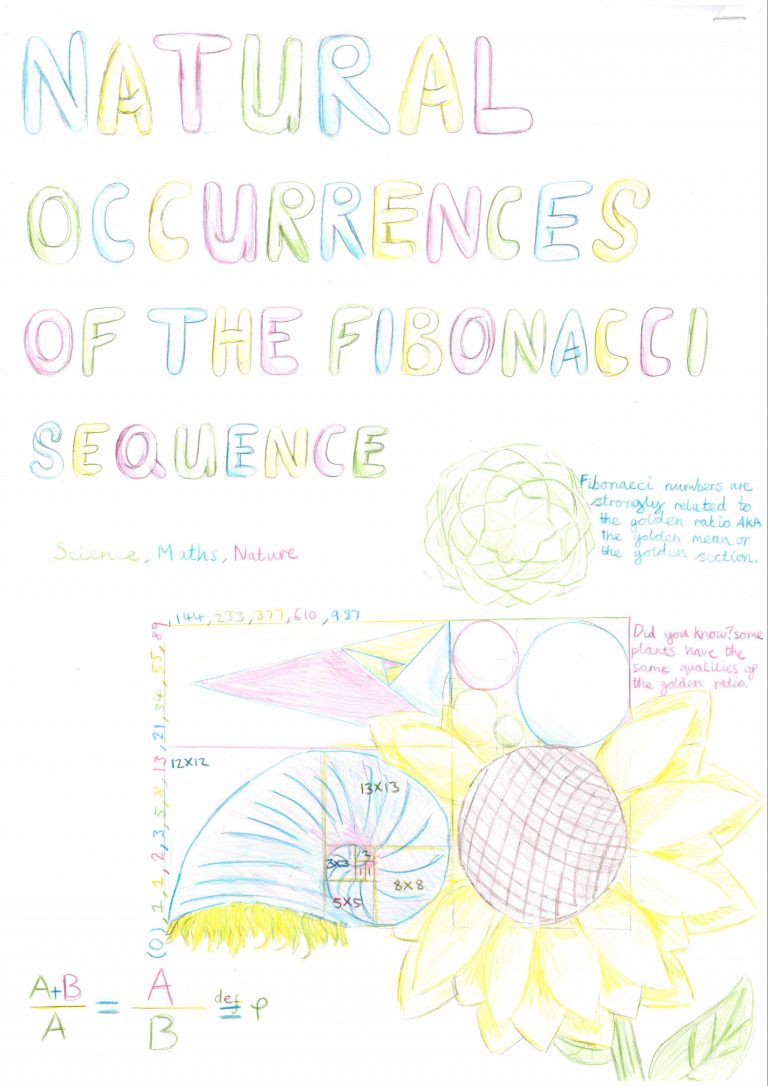 NATURAL
OCCURRENCES
OF THE FIBONACCI
SEQUENCE
Fibonacci numbers are
strongly related to
the golden ratio AKA
the golden mean or
the golden section.
Science, Maths, Nature
(0), 1, 1, 2, 3, 5, 8, 13, 21, 34, 55, 89
, 144, 233, 377, 610, 987
Did you know? some
plants have the
same qualities of
the golden ratio.
12×12
13×13
3×3
2
1 1
8×8
5×5
A+B
A
=
A
B
def
=
φ